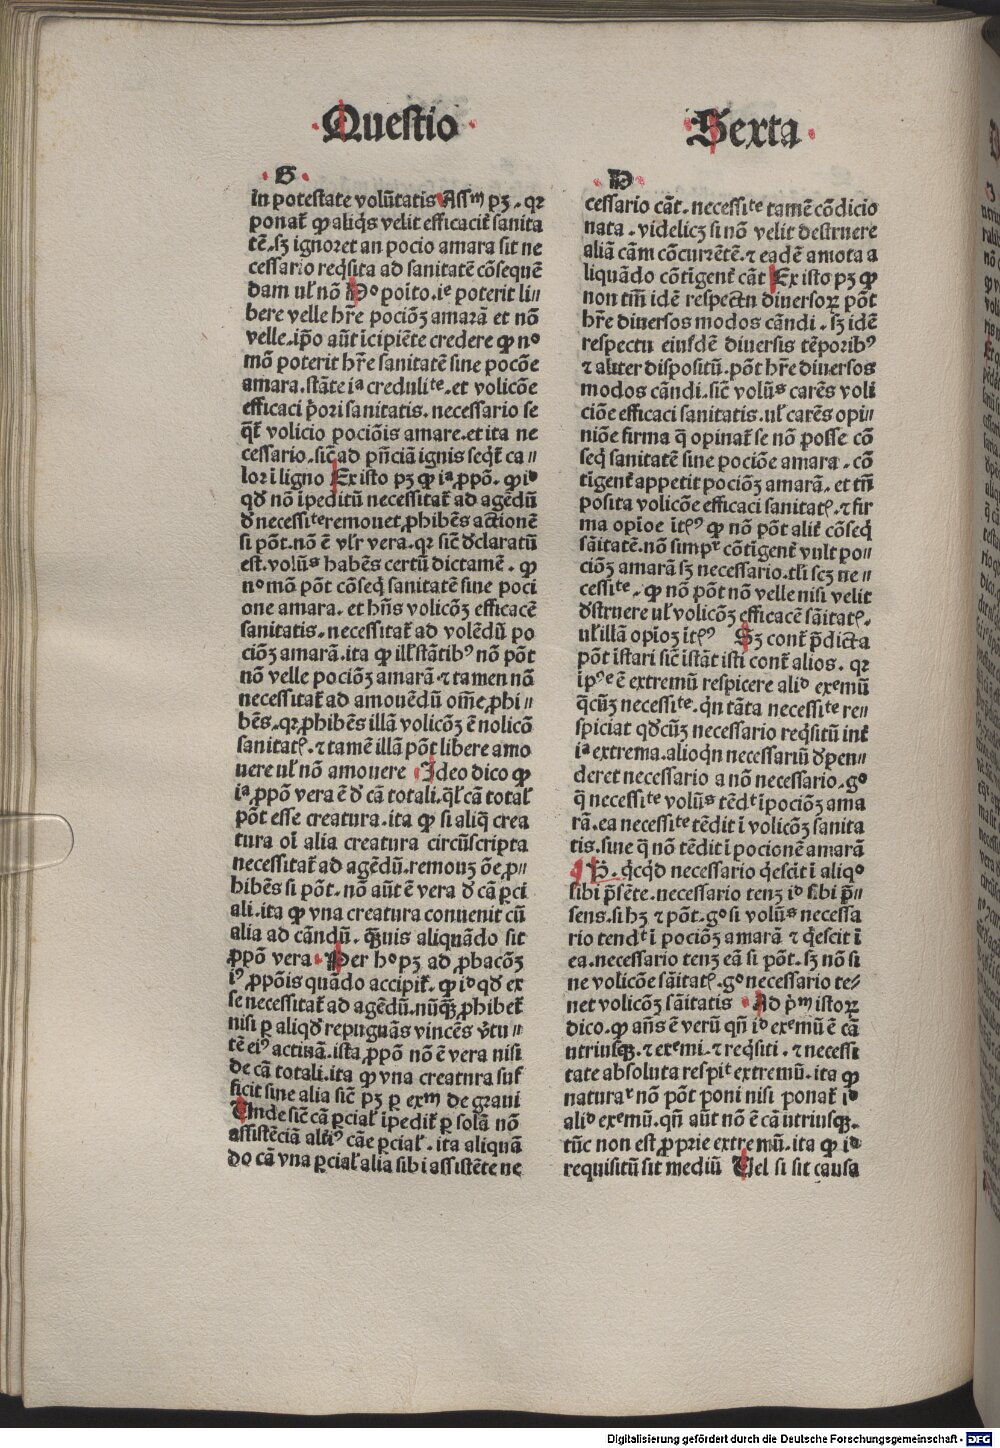 Questio
Sexta
G
in potestate volūtatis Assᵐ pꝫ . qꝛ
ponat̄ ꝙ aliq̇s velit efficacit̄ sanita
tē . sꝫ ignoret an pocio amara sit ne
cessario req̇sita ad sanitatē cōsequē
dam ul̄ nō Hᵒ poīto . iᵉ poterit li⸗
bere velle hr̄e pociōꝫ amarā et nō
velle . ip̄o aūt īcipiēte credere ꝙ nᵒ
mō poterit hr̄e sanitatē sine pocōe
amara . stāte iᵃ credulitᵉ . et volicōe
efficaci p̄ori sanitatis . necessario se
q̄t̄ volicio pociōis amare . et ita ne
cessario . sic̄ ad pn̄ciā ignis seq̄t̄ ca⸗
lor ī ligno Ex isto pꝫ ꝙ iᵃ ꝓpō . ꝙ iᵈ
qđ nō īpeditū necessitat̄ ad agēdū
đ necessitᵉ remouet ꝓhibēs actionē
si pōt . nō ē vl̄r vera . qꝛ sic̄ đclaratū
est . volūˢ habēs certū dictamē . ꝙ
nᵒ mō pōt cōseq̄ sanitatē sine poci
one amara . et hn̄s volicōꝫ efficacē
sanitatis . necessitat̄ ad volēdū po
ciōꝫ amarā . ita ꝙ ill̄ stātibꝰ nō pōt
nō velle pociōꝫ amarā ⁊ tamen nō
necessitat̄ ad amouēdū om̄e ꝓhi⸗
bēs . qꝛ ꝓhibēs illā volicōꝫ ē nolicō
sanitatꝭ . ⁊ tamē illā pōt libere amo
uere ul̄ nō amouere Ideo dico ꝙ
iᵃ ꝓpō vera ē đ cā totali . ql̄ cā total̄
pōt esse creatura . ita ꝙ si aliq̄ crea
tura oī alia creatura circūscripta
necessitat̄ ad agēdū . remouꝫ ōe ꝓ⸗
hibēs si pōt . nō aūt ē vera đ cā ꝑci
ali . ita ꝙ vna creatura conuenit cū
alia ad cāndū . ꝙ̄uis aliquādo sit
ꝓpō vera Per hᵒ pꝫ ad ꝓbacōꝫ
iꝰ ꝓpōis quādo accipit̄ . ꝙ iᵈ qđ ex
se necessitat̄ ad agēdū . nūꝙ̄ ꝓhibet̄
nisi ꝑ aliqđ repugnās vincēs v̄tu⸗
tē eiꝰ actiuā . ista ꝓpō nō ē vera nisi
de cā totali . ita ꝙ vna creatura suf
ficit sine alia sic̄ pꝫ ꝑ exᵐ de graui
Unde sic̄ cā ꝑcial̄ īpedit̄ ꝑ solā nō
assistēciā altīꝰ cāe ꝑcial̄ . ita aliquā
do cā vna ꝑcial̄ alia sibi assistēte ne
H
cessario cāt . necessitᵉ tamē cōdicio
nata . videlicꝫ si nō velit destruere
aliā cām cōcurrētē . ⁊ eadē amota a
liquādo cōtīgent̄ cāt Ex isto pꝫ ꝙ
non tm̄ idē respectu diuersoꝝ pōt
hr̄e diuersos modos cāndi . sꝫ idē
respectu eiusdē diuersis tēporibꝰ
⁊ aliter dispositū . pōt hr̄e diuersos
modos cāndi . sic̄ volūˢ carēs voli
ciōe efficaci sanitatis . ul̄ carēs opi⸗
niōe firma q̄ opinat̄ se nō posse cō
seq̄ sanitatē sine pociōe amara . cō
tīgent̄ appetit pociōꝫ amarā . et tn̄
posita volicōe efficaci sanitatꝭ . ⁊ fir
ma opīoe ītꝭꝰ ꝙ nō pōt alit̄ cōseq̄
sāitatē . nō simpʳ cōtīgent̄ vult po⸗
ciōꝫ amarā sꝫ necessario . tl̄i scꝫ ne⸗
cessitᵉ . ꝙ nō pōt nō velle nisi velit
đstruere ul̄ volicōꝫ efficacē sāitatꝭ .
ul̄ illā opīoꝫ ītꝭꝰ Sꝫ cont̄ p̄dicta
pōt īstari sic̄ īstāt isti cont̄ alios . qꝛ
ipꝰᵉ ē extremū respicere aliᵈ exᵉmū
q̄cūꝫ necessitᵉ . q̇n tāta necessitᵉ re⸗
spiciat qđcūꝫ necessario req̇sitū int̄
iᵃ extrema . alioq̇n necessariū đpen⸗
deret necessario a nō necessario . gᵒ
q̄ necessitᵉ volūˢ tēdᵗ ī pociōꝫ ama
rā . ea necessitᵉ tēdit ī volicōꝫ sanita
tis . sine q̄ nō tēdit ī pocionē amarā
P̄ . q̇cq̇d necessario q̇escit ī aliqᵒ
sibi p̄sēte . necessario tenꝫ iᵈ sibi p̄⸗
sens . si hꝫ ⁊ pōt . gᵒ si volūˢ necessa
rio tendᵗ ī pociōꝫ amarā ⁊ q̇escit ī
ea . necessario tenꝫ eā si pōt . sꝫ nō si
ne volicōe sāitatꝭ . gᵒ necessario te⸗
net volicōꝫ sāitatis Ad p̄ᵐ istoꝝ
dico . ꝙ an̄s ē verū qn̄ iᵈ exᵉmū ē cā
utriusꝙ . ⁊ exᵉmi . ⁊ req̇siti . ⁊ necessi
tate absoluta respiᵗ extremū . ita ꝙ
naturaʳ nō pōt poni nisi ponat̄ iᵈ
aliᵈ exᵉmū . qn̄ aūt nō ē cā utriusꝙ .
tūc non est ꝓprie extremū . ita ꝙ iᵈ
requisitū sit mediū Uel si sit causa
Digitalisierung gefördert durch die Deutsche Forschungsgemeinschaft - DFG